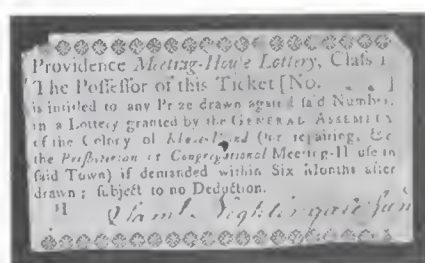 Providence Meeting-House Lottery, Class I
The Possessor of this Ticket [No. . . ]
is intitled to any Prize drawn against said Number,
in a Lottery granted by the GENERAL ASSEMBLY
of the Colony of Rhode-Island (for repairing, &c
the Presbyterian or Congregational Meeting-House in
said Town) if demanded within Six Months after
drawn; subject to no Deduction.
Saml. Nightingale Jun